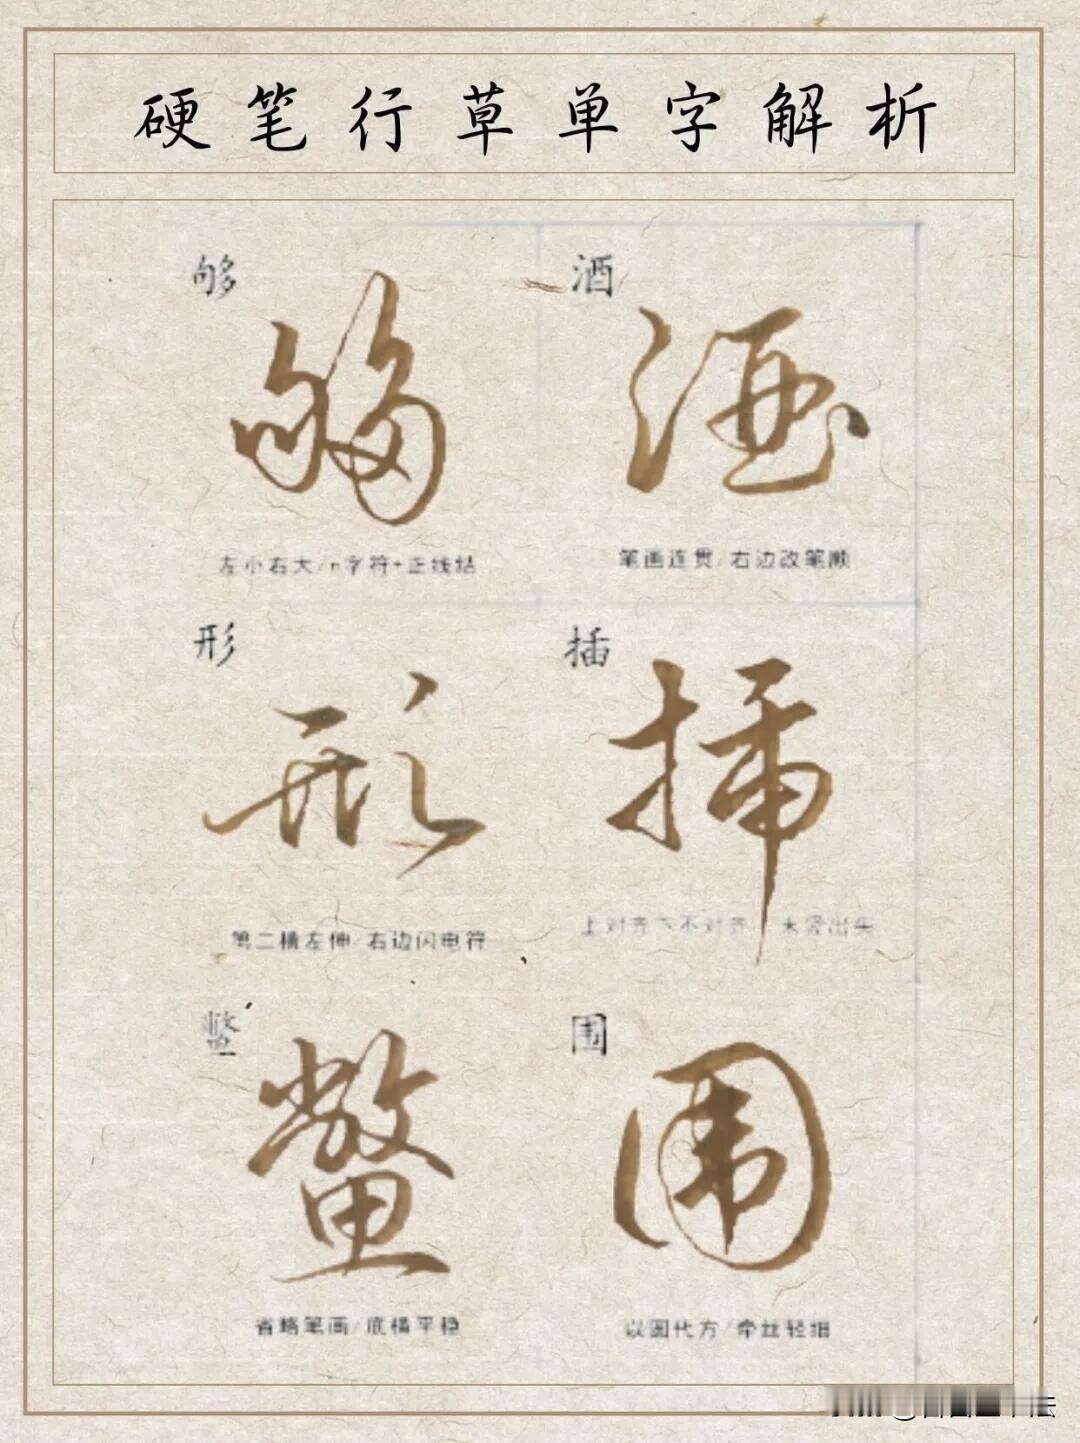 硬笔行草单字解析
够
够
左小右大/n字符+正线结
酒
酒
笔画连贯/右边改笔顺
形
形
第二横左伸/右边闪电符
插
插
上对齐下不对齐 末竖出头
鳖
鳖
省略笔画/底横平稳
围
围
以圆代方/牵丝轻细